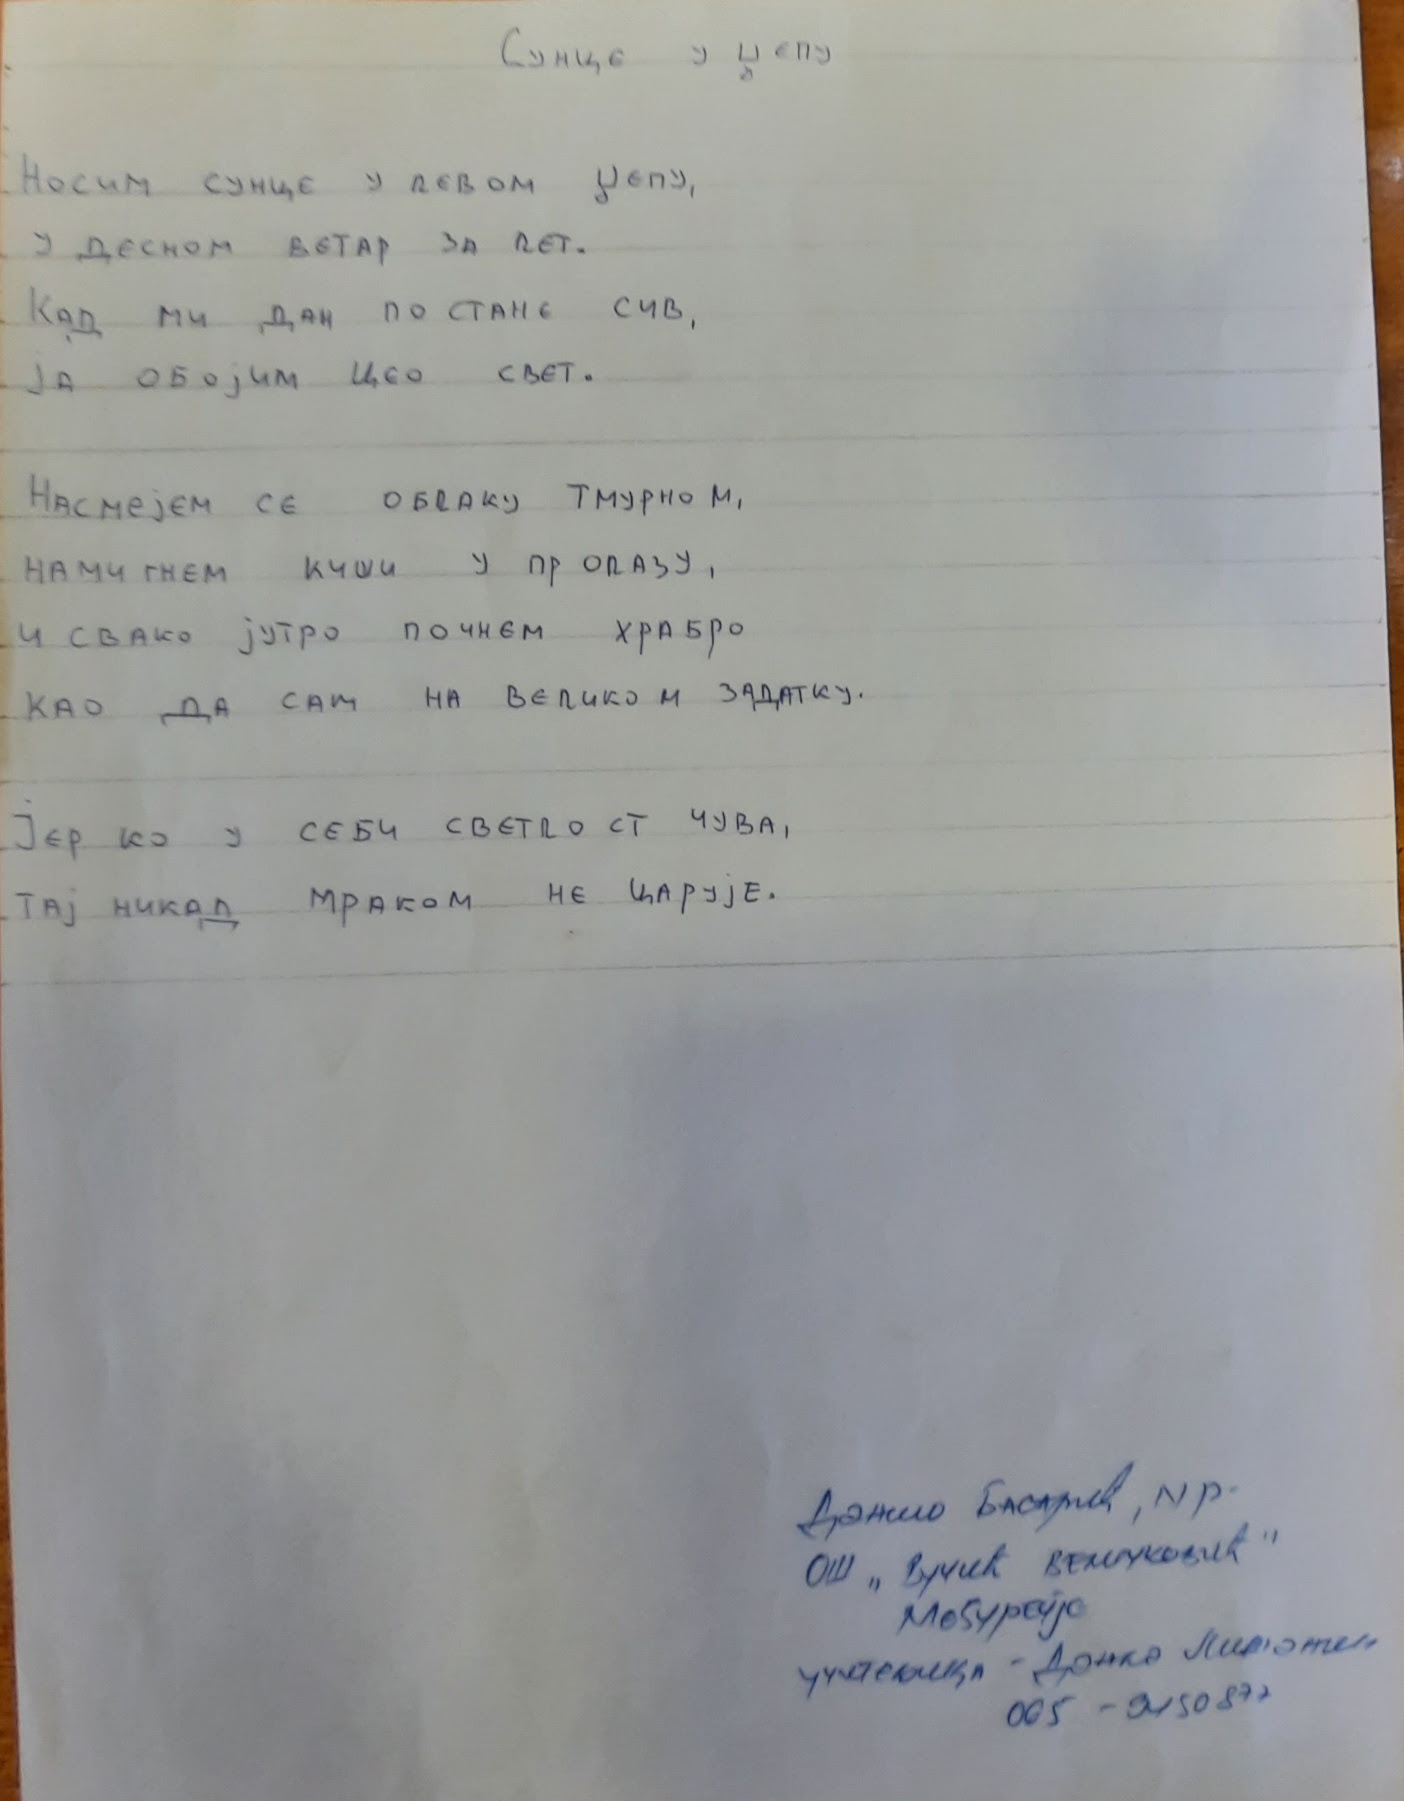 Сунце у џепу
Носим сунце у левом џепу,
у десном ветар за лет.
Кад ми дан постане сив,
ја обојим цео свет.
Насмејем се облаку тмурном,
намигнем киши у пролазу,
и свако јутро почнем храбро
као да сам на великом задатку.
Јер ко у себи светлост чува,
тај никад мраком не царује.
Данило
ОШ „Вучић Величковић"
учитељица - Данка